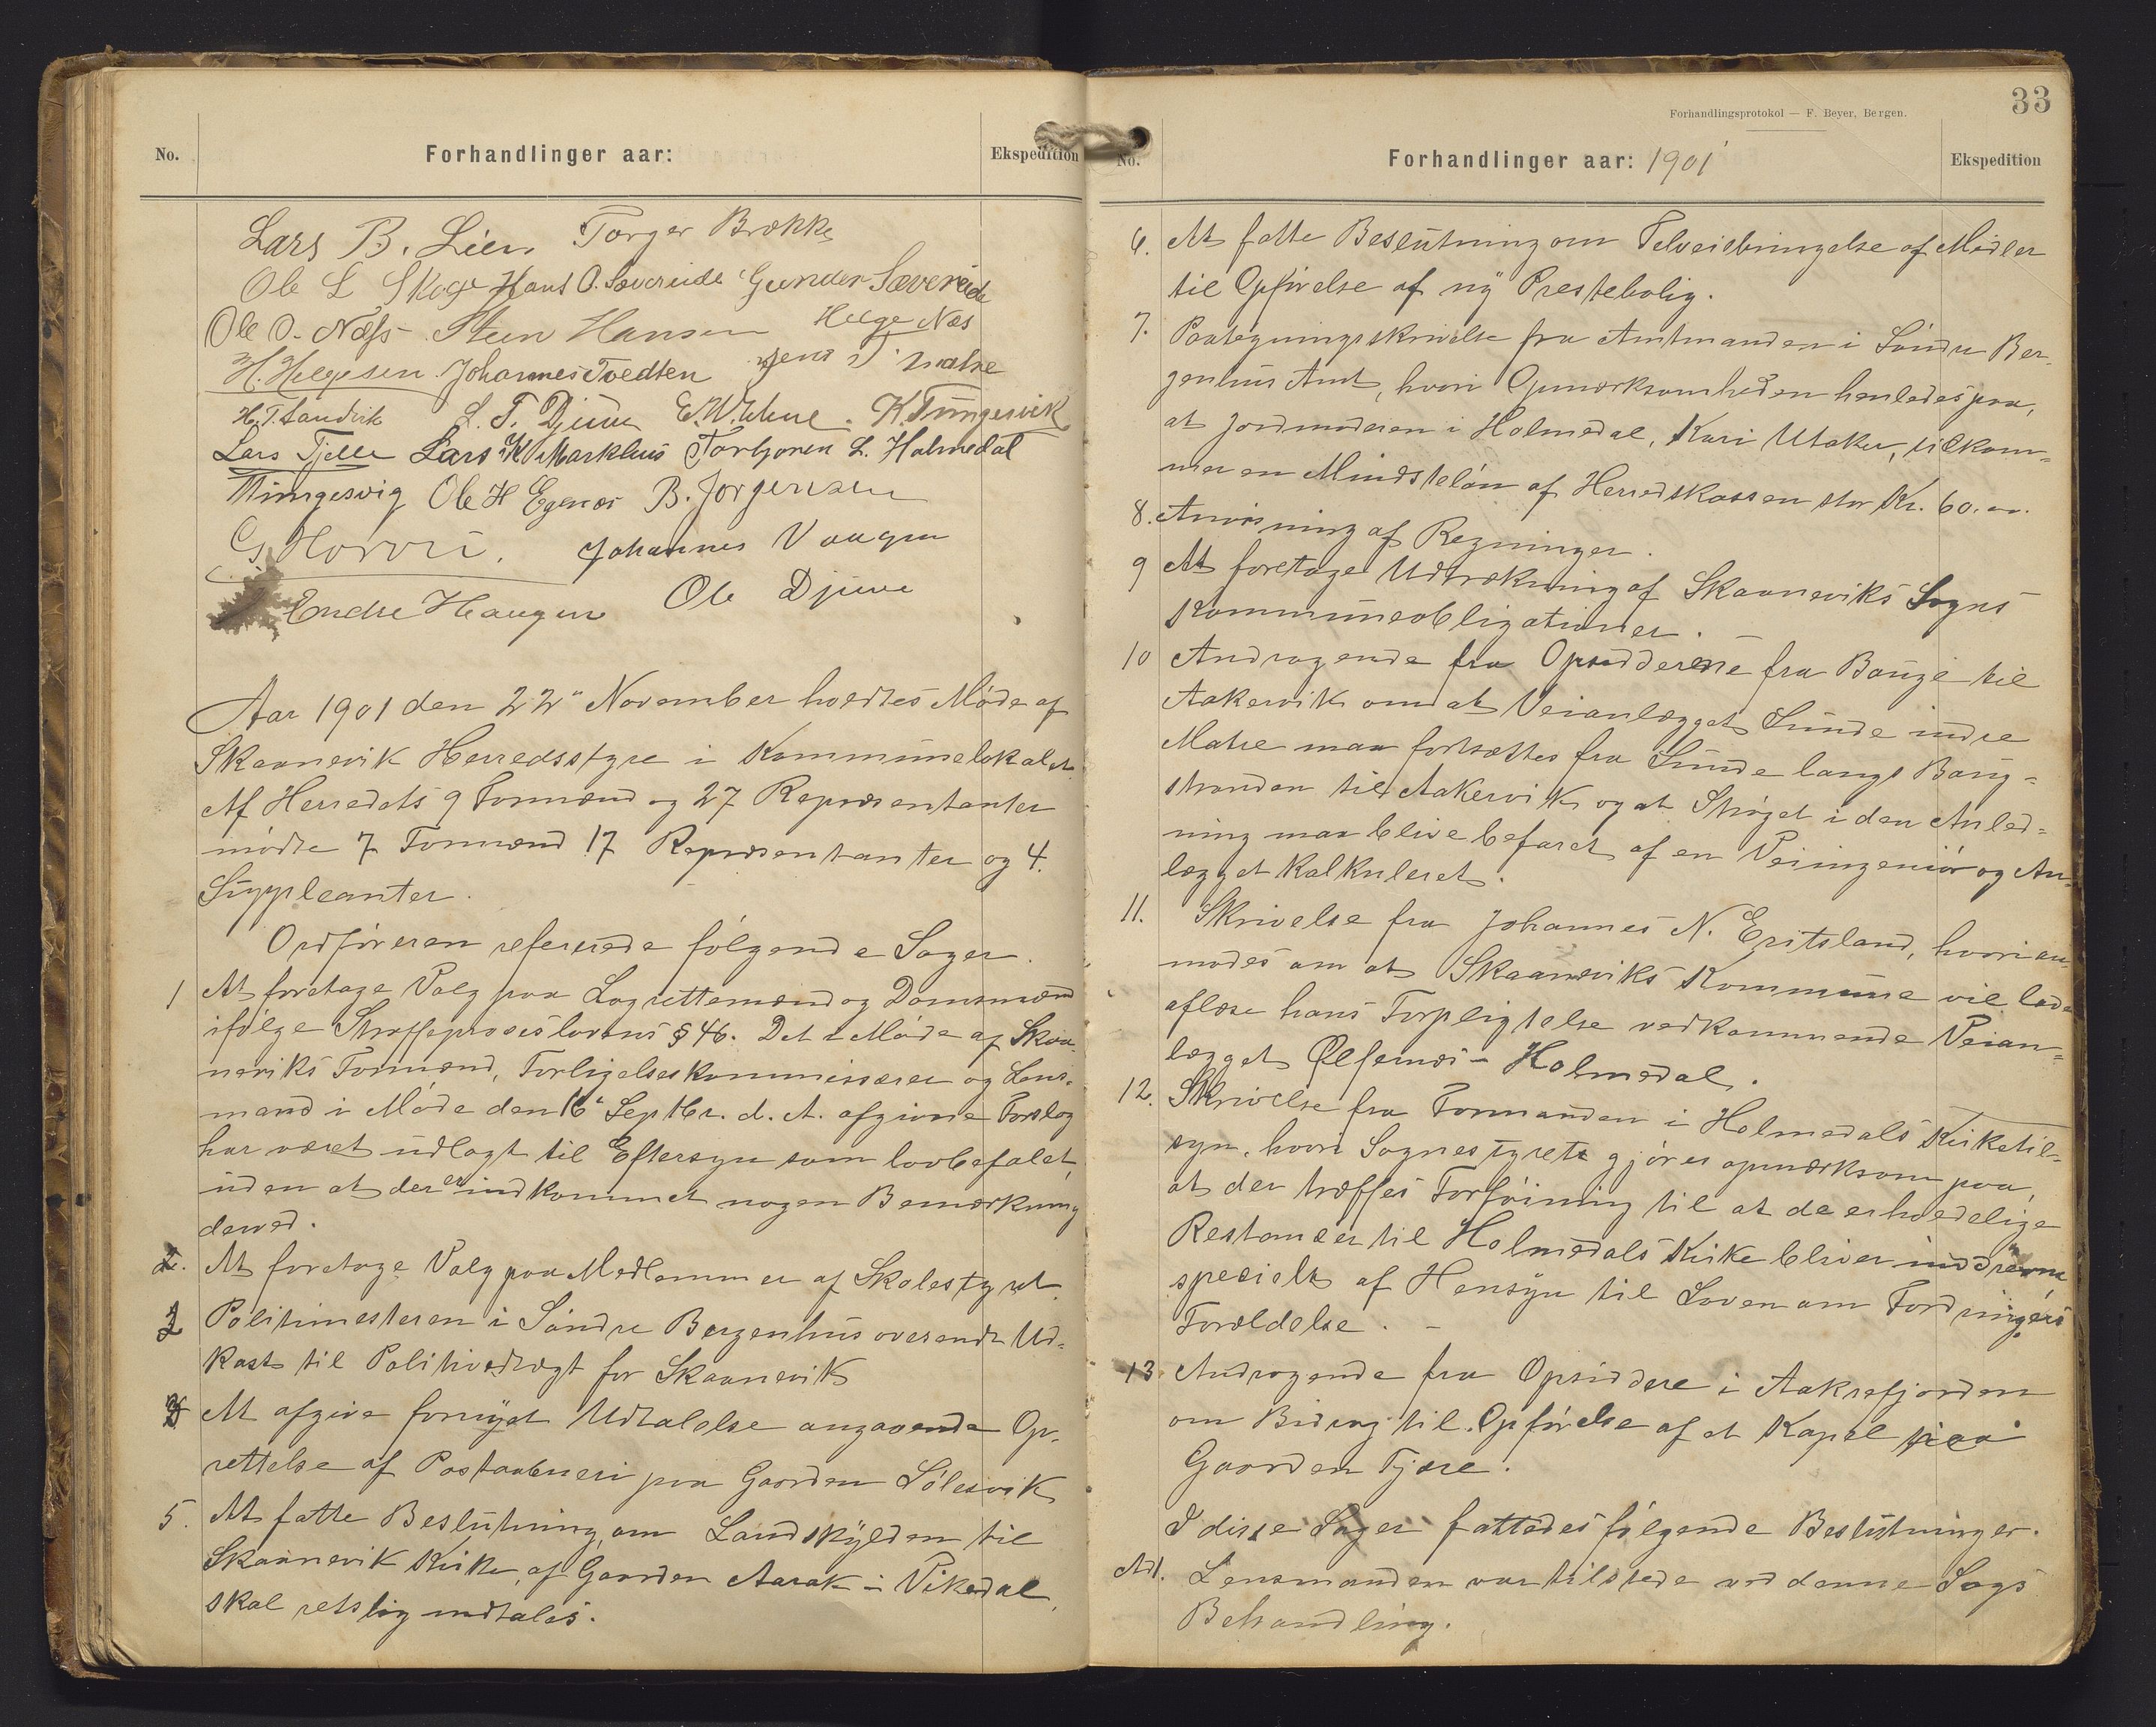 No.
Forhandlinger aar:
Ekspedition
Lars B. Lien Torger Brække
Ole L Skoge Hans O. Sævereide Gunder Sævereide
Ole O. Næss Steen Hansen Helge Næs
H. Helgesen Johannes Tvedten Jens
H. T. Sandvik L. T. Djuve K. Tungesvik
Lars Tjelle Lars K Markhus Torbjoren L. Holmedal
Tungesvig Ole H Egenæs B. Jørgensen
G. Hovori. Johannes Vaagen
Endre Haugen Ole Djuve
Aar 1901 den 22" November holdtes Møde af
Skaanevik Herredsstyre i Kommunelokalet.
Af Herredets 9 Formænd og 27 Repræsentanter
mødte 7 Formænd 17 Repræsentanter og 4.
Suppleanter.
Ordføreren refererede følgende Sager.
1 At foretage Valg paa Lagrettemænd og Domsmænd
ifølge Straffeproceslovens § 46. Det i Møde af Skaa-
neviks Formænd, Forligelseskommissærer og Lens-
mand i Møde den 16 Septbr. d. A. afgivne Forslag
har været udlagt til Eftersyn som lovbefalet
uden at der er indkommet nogen Bemærkning
derved.
2. At foretage Valg paa Medlemmer af Skolestyret
3 Politimesteren i Søndre Bergenhus oversendt Ud-
kast til Politivedtægt for Skaanevik
4 At afgive fornyet Udtalelse angaaende Op-
rettelse af Postaabneri paa Gaarden Sølesvik
5. At fatte Beslutning om Landskylden til
Skaanevik Kirke, af Gaarden Aarak i Vikedal,
skal retslig indtales.
33
Forhandlingsprotokol — F. Beyer, Bergen.
No.
Forhandlinger aar: 1901
Ekspedition
6. At fatte Beslutning om Tilveiebringelse af Midler
til Opførelse af ny Prestebolig.
7. Paategningsskrivelse fra Amtmanden i Søndre Ber-
genhus Amt, hvori Opmærksomheden henledes paa,
at Jordmoderen i Holmedal, Kari Utaker, tilkom-
mer en Mindsteløn af Herredskassen stor Kr. 60.
8. Anvisning af Regninger.
9 At foretage Udtrækning af Skaaneviks Sogns
Kommuneobligationer.
10 Andragende fra Opsidderne fra Bauge til
Aakervik om at Veianlægget Sunde indre
Matre maa fortsættes fra Sunde langs Baug-
stranden til Aakervik og at Strøget i den Anled-
ning maa blive befaret af en Veiingeniør og An-
lægget Kalkuleret.
11. Skrivelse fra Johannes N. Eritsland, hvori an-
modes om at Skaaneviks Kommune vil lade
afløse hans Forpligtelse vedkommende Veian-
lægget Ølfernæs - Holmedal.
12. Skrivelse fra Formanden i Holmedals Kirketil-
syn, hvori Sognestyret gjøres opmærksom paa,
at der træffes Forføining til at de erholdelige
Restancer til Holmedals Kirke bliver inddrevne
specielt af Hensyn til Loven om Fordringers
Forældelse. -
13 Andragende fra Opsiddere i Aakrefjorden
om Bidrag til Opførelse af et Kapel paa
Gaarden Fjære.
I disse Sager fattedes følgende Beslutninger.
Ad 1. Lensmanden var tilstede ved denne Sags
Behandling.